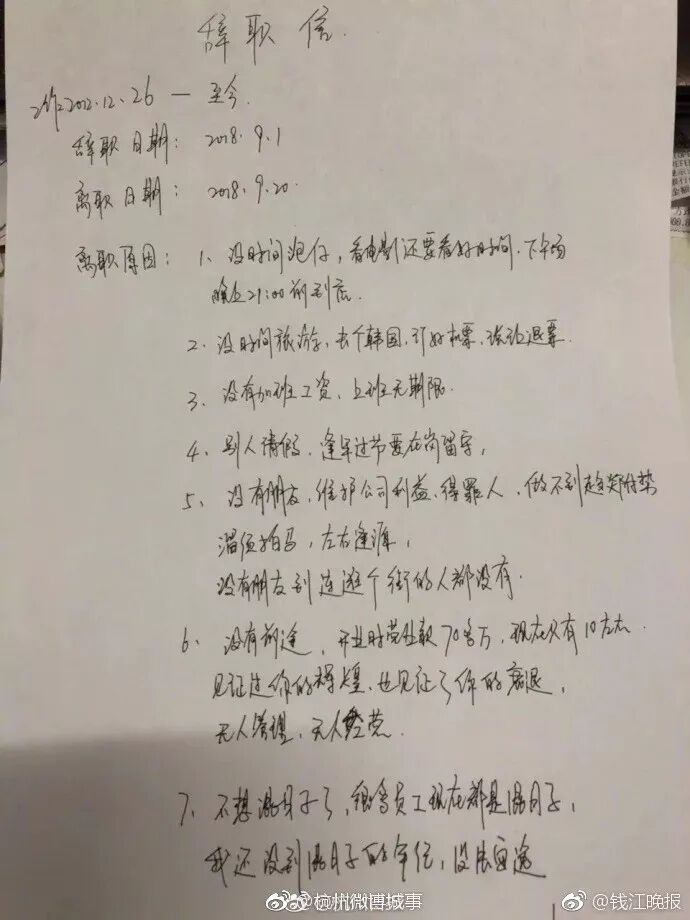 辞职信.
工作2012.12.26 — 至今.
辞职日期: 2018.9.1
离职日期: 2018.9.20.
离职原因: 1、没时间泡仔,看电影还要看好时间.下午场
晚上21:00前到店.
2、没时间旅游,去个韩国,订好机票,谈话退票.
3、没有加班工资、上班无期限.
4、别人请假,逢年过节要在岗留守,
5、没有朋友,维护公司利益、得罪人,做不到趋炎附势
溜须拍马,左右逢源,
没有朋友到连逛个街的人都没有.
6、没有前途,开业时营业额70多万,现在只有10左右.
见证过你的辉煌、也见证了你的衰退,
无人管理、无人经营.
7、不想混日子了,很多员工现在都是混日子,
我还没到混日子的年纪,没法
@杭州微博城事
@钱江晚报